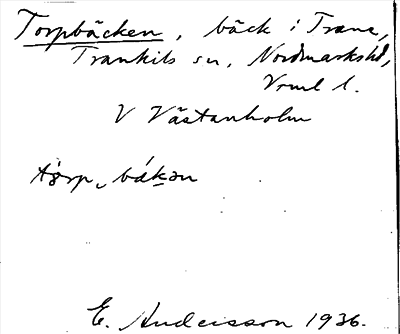 Torpbäcken, bäck i Trane,
Trankils sn, Nordmarks hd,
Vrml l.
V Västanholm
E. Andersson 1936.